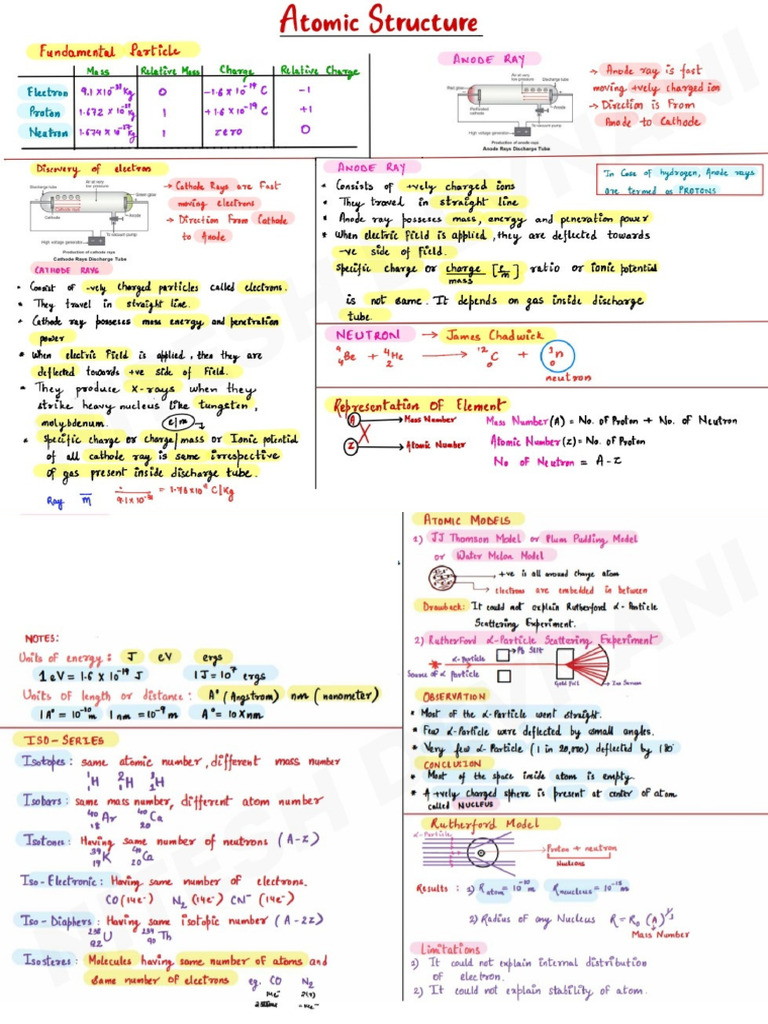 Atomic Structure
Fundamental Particle
Mass Relative Mass Charge Relative Charge
Electron 9.1 x 10⁻³¹ Kg 0 -1.6 x 10⁻¹⁹ C -1
Proton 1.672 x 10⁻²⁷ Kg 1 +1.6 x 10⁻¹⁹ C +1
Neutron 1.674 x 10⁻²⁷ Kg 1 zero 0
ANODE RAY
Air at very low pressure
Discharge tube
Red glow
Perforated cathode
Anode
To vacuum pump
High voltage generator
Production of anode rays
Anode Rays Discharge Tube
→ Anode ray is fast
moving +vely charged ion
→ Direction is From
Anode to Cathode
Discovery of electron
Air at very low pressure
Discharge tube
Green glow
Cathode rays
Cathode
Anode
To vacuum pump
High voltage generator
Production of cathode rays
Cathode Rays Discharge Tube
→ Cathode Rays are Fast
moving electrons
→ Direction From Cathode
to Anode
CATHODE RAYS
• Consist of -vely charged particles called electrons.
• They travel in straight line.
• Cathode ray possesses mass energy and penetration
power
• When electric Field is applied, then they are
deflected towards +ve side of Field.
• They produce X-rays when they
strike heavy nucleus like tungsten,
molybdenum. (e/m)
• Specific charge or charge/mass or Ionic potential
of all cathode ray is same irrespective
of gas present inside discharge tube.
ANODE RAY
• Consists of +vely charged ions
• They travel in straight line
• Anode ray posseses mass, energy and peneration power
• When electric field is applied, they are deflected towards
-ve side of Field.
Specific charge or charge/mass [e/m] ratio or ionic potential
is not same. It depends on gas inside discharge
tube.
"In Case of hydrogen, Anode rays
are termed as PROTONS
NEUTRON → James Chadwick
⁹₄Be + ⁴₂He → ¹²₆C + ¹₀n
neutron
Representation Of Element
A → Mass Number
Z → Atomic Number
X
Mass Number(A) = No. of Proton + No. of Neutron
Atomic Number(z) = No. of Proton
No of Neutron = A-Z
NOTES:
Units of energy: J eV ergs
1 eV = 1.6 x 10⁻¹⁹ J 1J = 10⁷ ergs
Units of length or distance: A° (Angstrom) nm (nanometer)
1A° = 10⁻¹⁰ m 1nm = 10⁻⁹ m A° = 10 x nm
ISO-SERIES
Isotopes: same atomic number, different mass number
¹₁H ²₁H ³₁H
Isobars: same mass number, different atom number
⁴⁰₁₈Ar ⁴⁰₂₀Ca
Isotones: Having same number of neutrons (A-Z)
³⁹₁₉K ⁴⁰₂₀Ca
Iso-Electronic: Having same number of electrons.
CO (14e⁻) N₂ (14e⁻) CN⁻ (14e⁻)
Iso-Diaphers: Having same isotopic number (A-2Z)
²³⁸₉₂U ²³⁴₉₀Th
Isosteres: Molecules having same number of atoms and
same number of electrons eg. CO N₂
ATOMIC MODELS
1) JJ Thomson Model or Plum Pudding Model
or Water Melon Model
→ +ve is all around charge atom
→ electrons are embedded in between
Drawback: It could not explain Rutherford α-Particle
Scattering Experiment.
2) Rutherford α-Particle Scattering Experiment
α-Particle
Pb Slit
Source of α Particle
Gold Foil
Zns Screen
OBSERVATION
• Most of the α-Particle went straight.
• Few α-Particle were deflected by small angles.
• Very few α-Particle (1 in 20,000) deflected by 180°
CONCLUSION
• Most of the space inside atom is empty.
• A +vely charged sphere is present at center of atom
called NUCLEUS
Rutherford Model
α-Particle
Proton + neutron
Nucleons
Results: 1) R atom = 10⁻¹⁰ m R nucleus = 10⁻¹⁵ m
2) Radius of any Nucleus R = R₀ (A)^1/3
Mass Number
Limitations
1) It could not explain internal distribution
of electron.
2) It could not explain stability of atom.